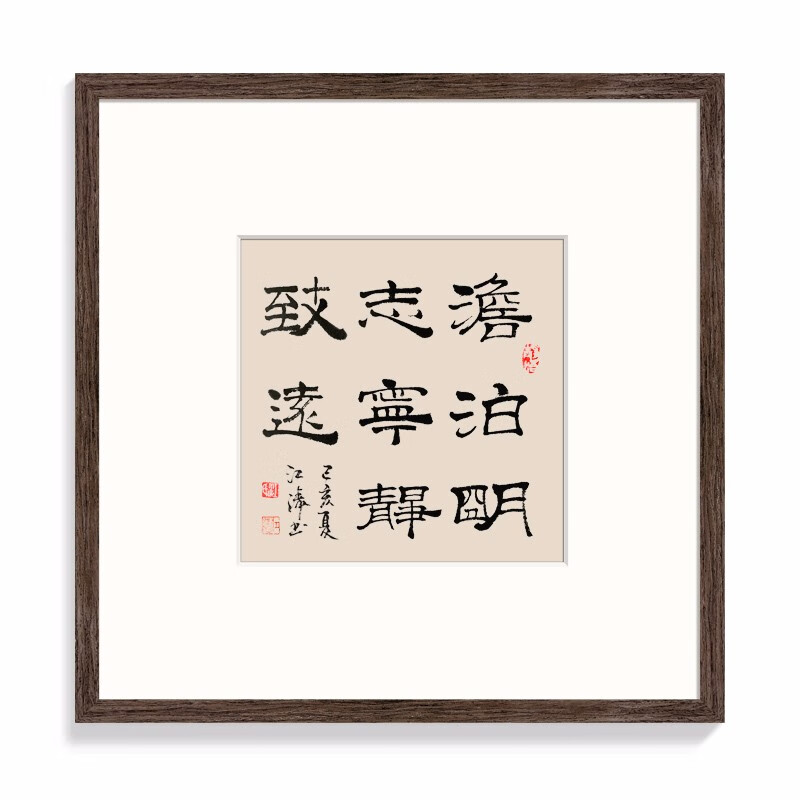 澹泊明
志寧靜
致遠
己亥夏
江濤书